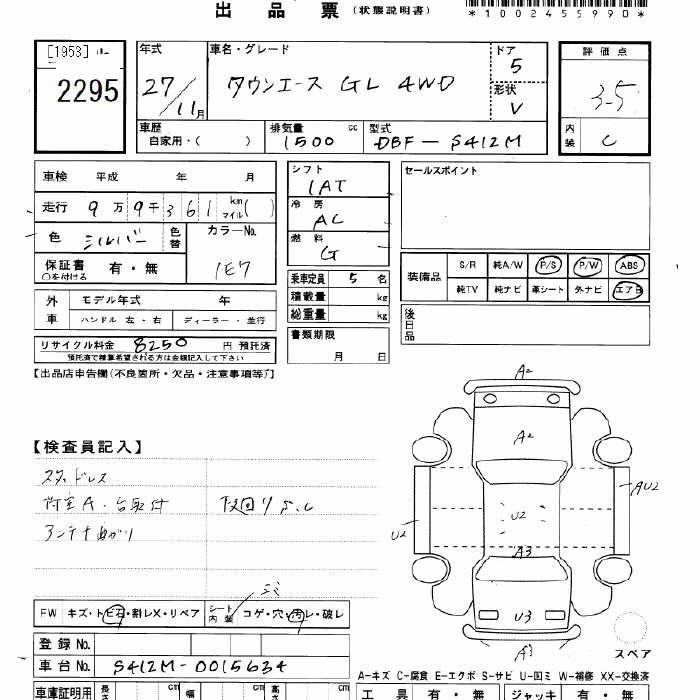 出 品 票 (状態説明書)
*1002455990*
[1953]
2295
年式 27/11月
車名・グレード タウンエース GL 4WD
ドア 5
形状 V
評価点 3.5
内装 C
車歴 自家用・( )
排気量 1500 cc
型式 DBF-S412M
車検 平成 年 月
走行 9万9千361 km マイル( )
色 シルバー 色替
カラーNo. 1E7
保証書 有・無
○を付ける
外車 モデル年式 年
ハンドル 左・右 ディーラー・並行
リサイクル料金 8250 円 預託済
預託済で精算希望される方は金額記入して下さい
シフト IAT
冷房 AC
燃料 G
乗車定員 5 名
積載量 kg
総重量 kg
書類期限
月 日
セールスポイント
装備品 S/R 純A/W P/S P/W ABS
純TV 純ナビ 革シート 外ナビ エアB
後日品
【出品店申告欄(不良箇所・欠品・注意事項等)】
【検査員記入】
スタッドレス
荷室A・台取付 下回りS.C
アンテナ曲がり
FW キズ・トビ石・割レX・リペア シート内装 コゲ・穴・汚レ・破レ
登録No.
車台No. S412M-0015634
車庫証明用 長さ cm 幅 cm 高さ cm
A2
A2
AU2
U2
U2
A3
U3
A3
スペア
A-キズ C-腐食 E-エクボ S-サビ U-凹ミ W-補修 XX-交換済
工具 有・無 ジャッキ 有・無